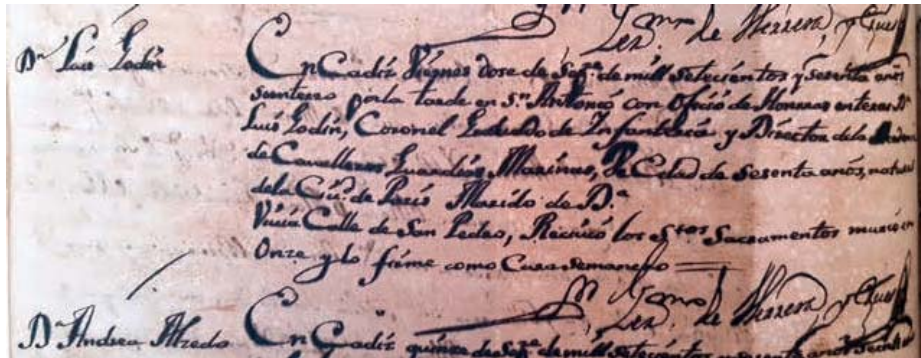 de Herrera, y
Dn. Luis Godin
En Cadiz Viernes dose de Sepre. de mill setecientos y sesenta años
se enterro por la tarde en Sn. Antonio con Oficio de Honrras enteras Dn.
Luis Godin, Coronel de Infantteria y Director de la
de Cavalleros Guardias Marinas, De Edad de sesenta años, natural
de la Ciu. de Paris Marido de D.a
Vivia Calle de San Pedro, Recivió los Stos. Sacramentos murió en
Onze y lo firme como Cura semanero
de Herrera, y
Dn. Andrea Alfredo
En Cadiz quinze de Sepre. de mill setecientos y sesenta